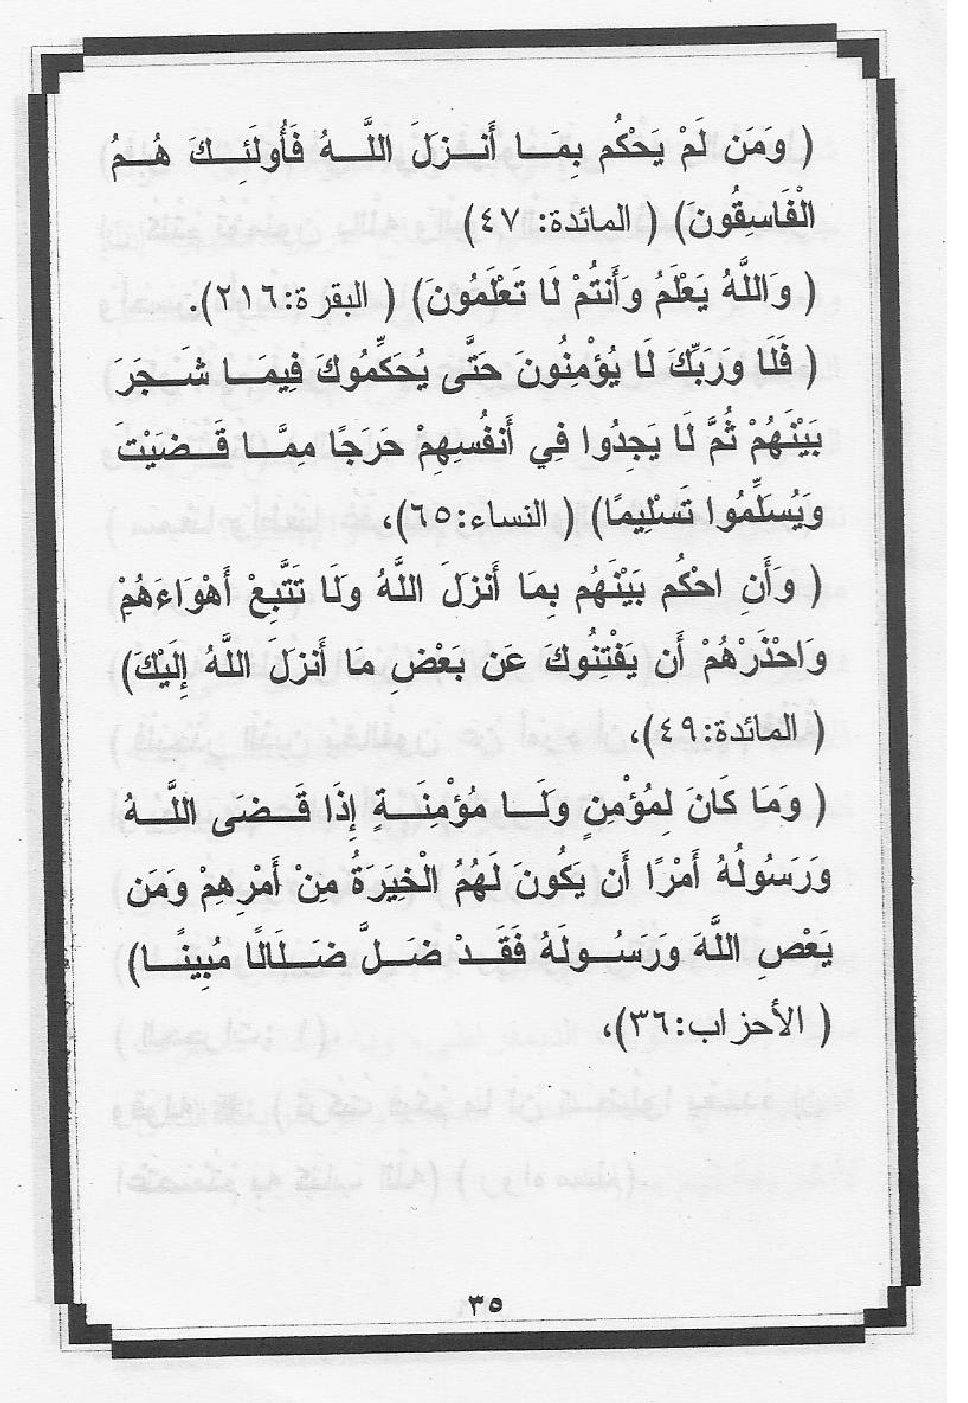 ( وَمَن لَمْ يَحْكُم بِمَـا أَنـزَلَ اللَّـهُ فَأُولَئِـكَ هُـمُ
الْفَاسِقُونَ) ( المائدة: ٤٧)
( وَاللَّهُ يَعْلَمُ وَأَنتُمْ لَا تَعْلَمُونَ) ( البقرة:٢١٦).
( فَلَا وَرَبِّكَ لَا يُؤْمِنُونَ حَتَّى يُحَكِّمُوكَ فِيمَـا شَـجَرَ
بَيْنَهُمْ ثُمَّ لَا يَجِدُوا فِي أَنفُسِهِمْ حَرَجًا مِمَّـا قَـضَيْتَ
وَيُسَلِّمُوا تَسْلِيمًا) ( النساء:٦٥)،
( وَأَنِ احْكُم بَيْنَهُم بِمَا أَنزَلَ اللَّهُ وَلَا تَتَّبِعْ أَهْوَاءَهُمْ
وَاحْذَرْهُمْ أَن يَفْتِنُوكَ عَن بَعْضِ مَا أَنزَلَ اللَّهُ إِلَيْكَ)
( المائدة:٤٩)،
( وَمَا كَانَ لِمُؤْمِنٍ وَلَـا مُؤْمِنَـةٍ إِذَا قَـضَى اللَّـهُ
وَرَسُولُهُ أَمْرًا أَن يَكُونَ لَهُمُ الْخِيَرَةُ مِنْ أَمْرِهِمْ وَمَن
يَعْصِ اللَّهَ وَرَسُـولَهُ فَقَـدْ ضَـلَّ ضَـلَالًا مُبِينًـا)
( الأحزاب:٣٦)،
٣٥